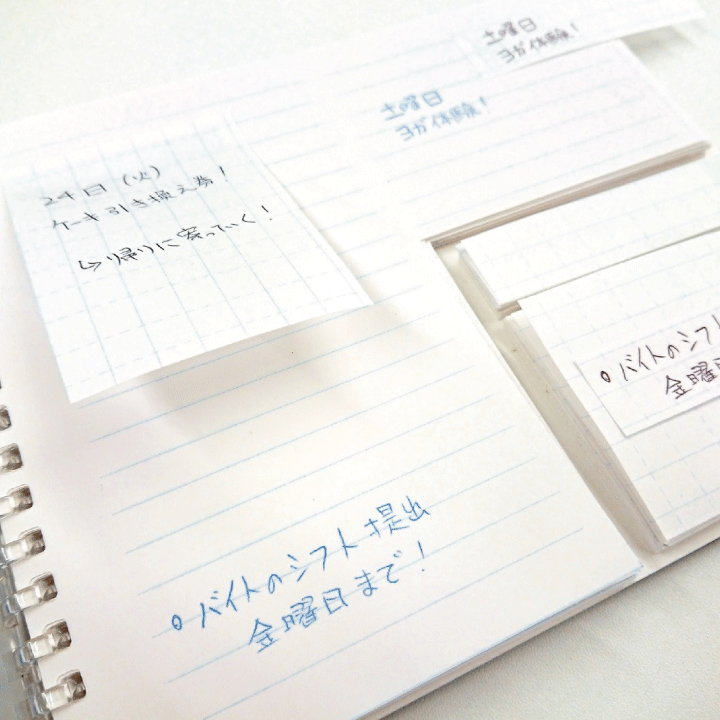 土曜日
ヨガ体験!
土曜日
ヨガ体験!
24日(火)
ケーキ引き換え券!
↳帰りに寄っていく!
○バイトのシフ
金曜日
○バイトのシフト提出
金曜日まで!